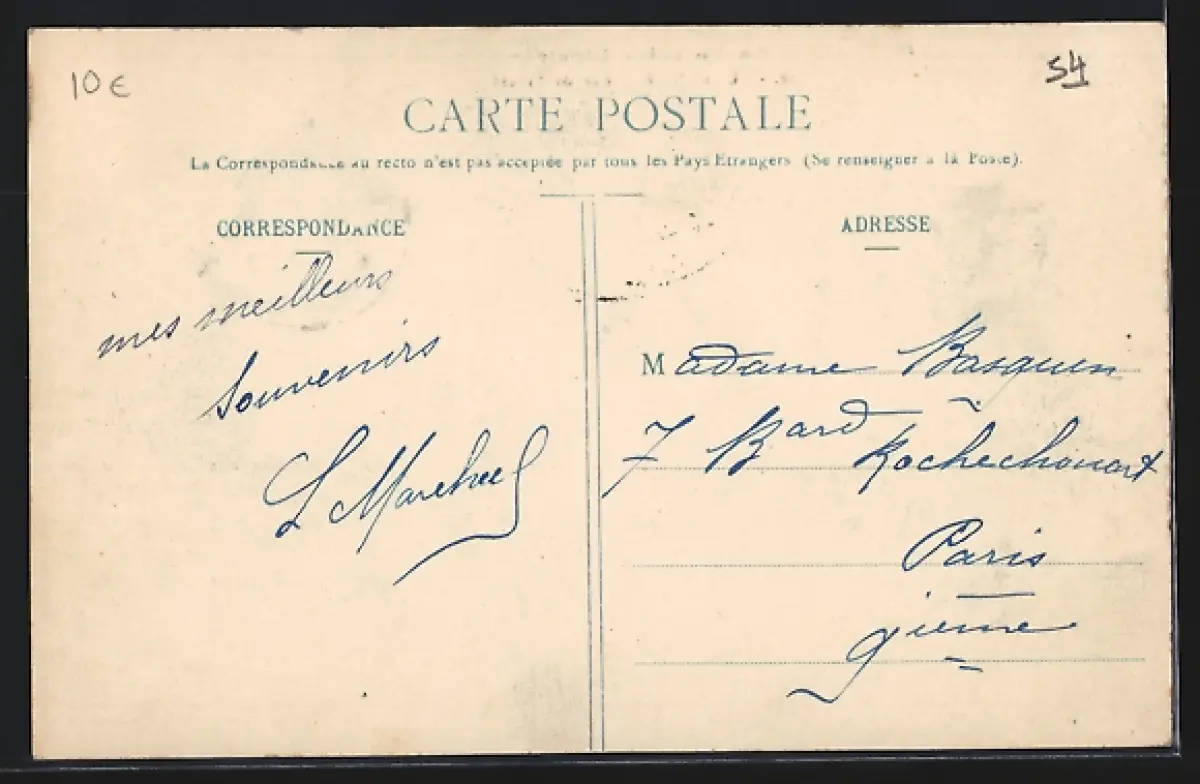 10€
54
CARTE POSTALE
La Correspondance au recto n'est pas acceptée par tous les Pays Etrangers (Se renseigner à la Poste).
CORRESPONDANCE
ADRESSE
mes meilleurs
Souvenirs
L Marchal
Madame Basquin
7 Bard Rochechouart
Paris
9ième